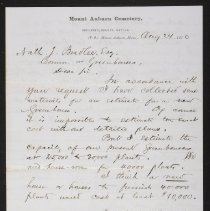 Mount Auburn Cemetery,
Aug 24, 188
Nath J. Bradlee, Esq.
Comm. on Greenhouses
Dear Sir,
In accordance with
your request I have collected some
materials for an estimate for a new
Greenhouse. Of course
it is impossible to estimate the exact
cost with our detailed plans.
But I estimate the
capacity of our present greenhouses
at 25000 to 30000 plants. We
need house room for 40000 plants.
I think a new
house or houses to furnish 40000
plants must cost at least $10,000.